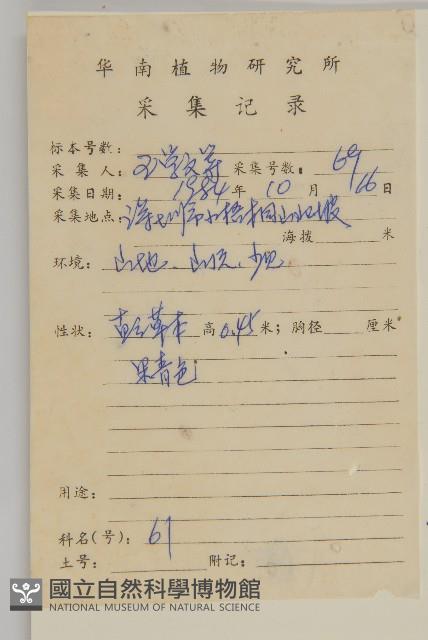 华南植物研究所
采集记录
标本号数：
采集人：王学文等 采集号数：69
采集日期：1984年10月16日
采集地点 深圳市小梧桐山北坡
海拨 米
环境：山地、山顶、少见
性状：直立草本 高0.45米；胸径 厘米
果青色
用途：
科名(号)：61
土号： 附记：
國立自然科學博物館
NATIONAL MUSEUM OF NATURAL SCIENCE